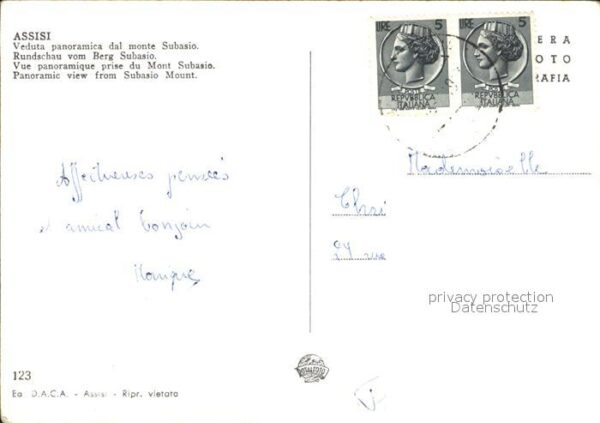 ASSISI
Veduta panoramica dal monte Subasio.
Rundschau vom Berg Subasio.
Vue panoramique prise du Mont Subasio.
Panoramic view from Subasio Mount.
LIRE 5
REPVBBLICA
ITALIANA
LIRE 5
REPVBBLICA
ITALIANA
ERA
OTO
RAFIA
Affectueuses pensées
et amical bonjour
Monique
Mademoiselle
Chri
rue
privacy protection
Datenschutz
123
Ed. D.A.C.A. - Assisi - Ripr. vietata